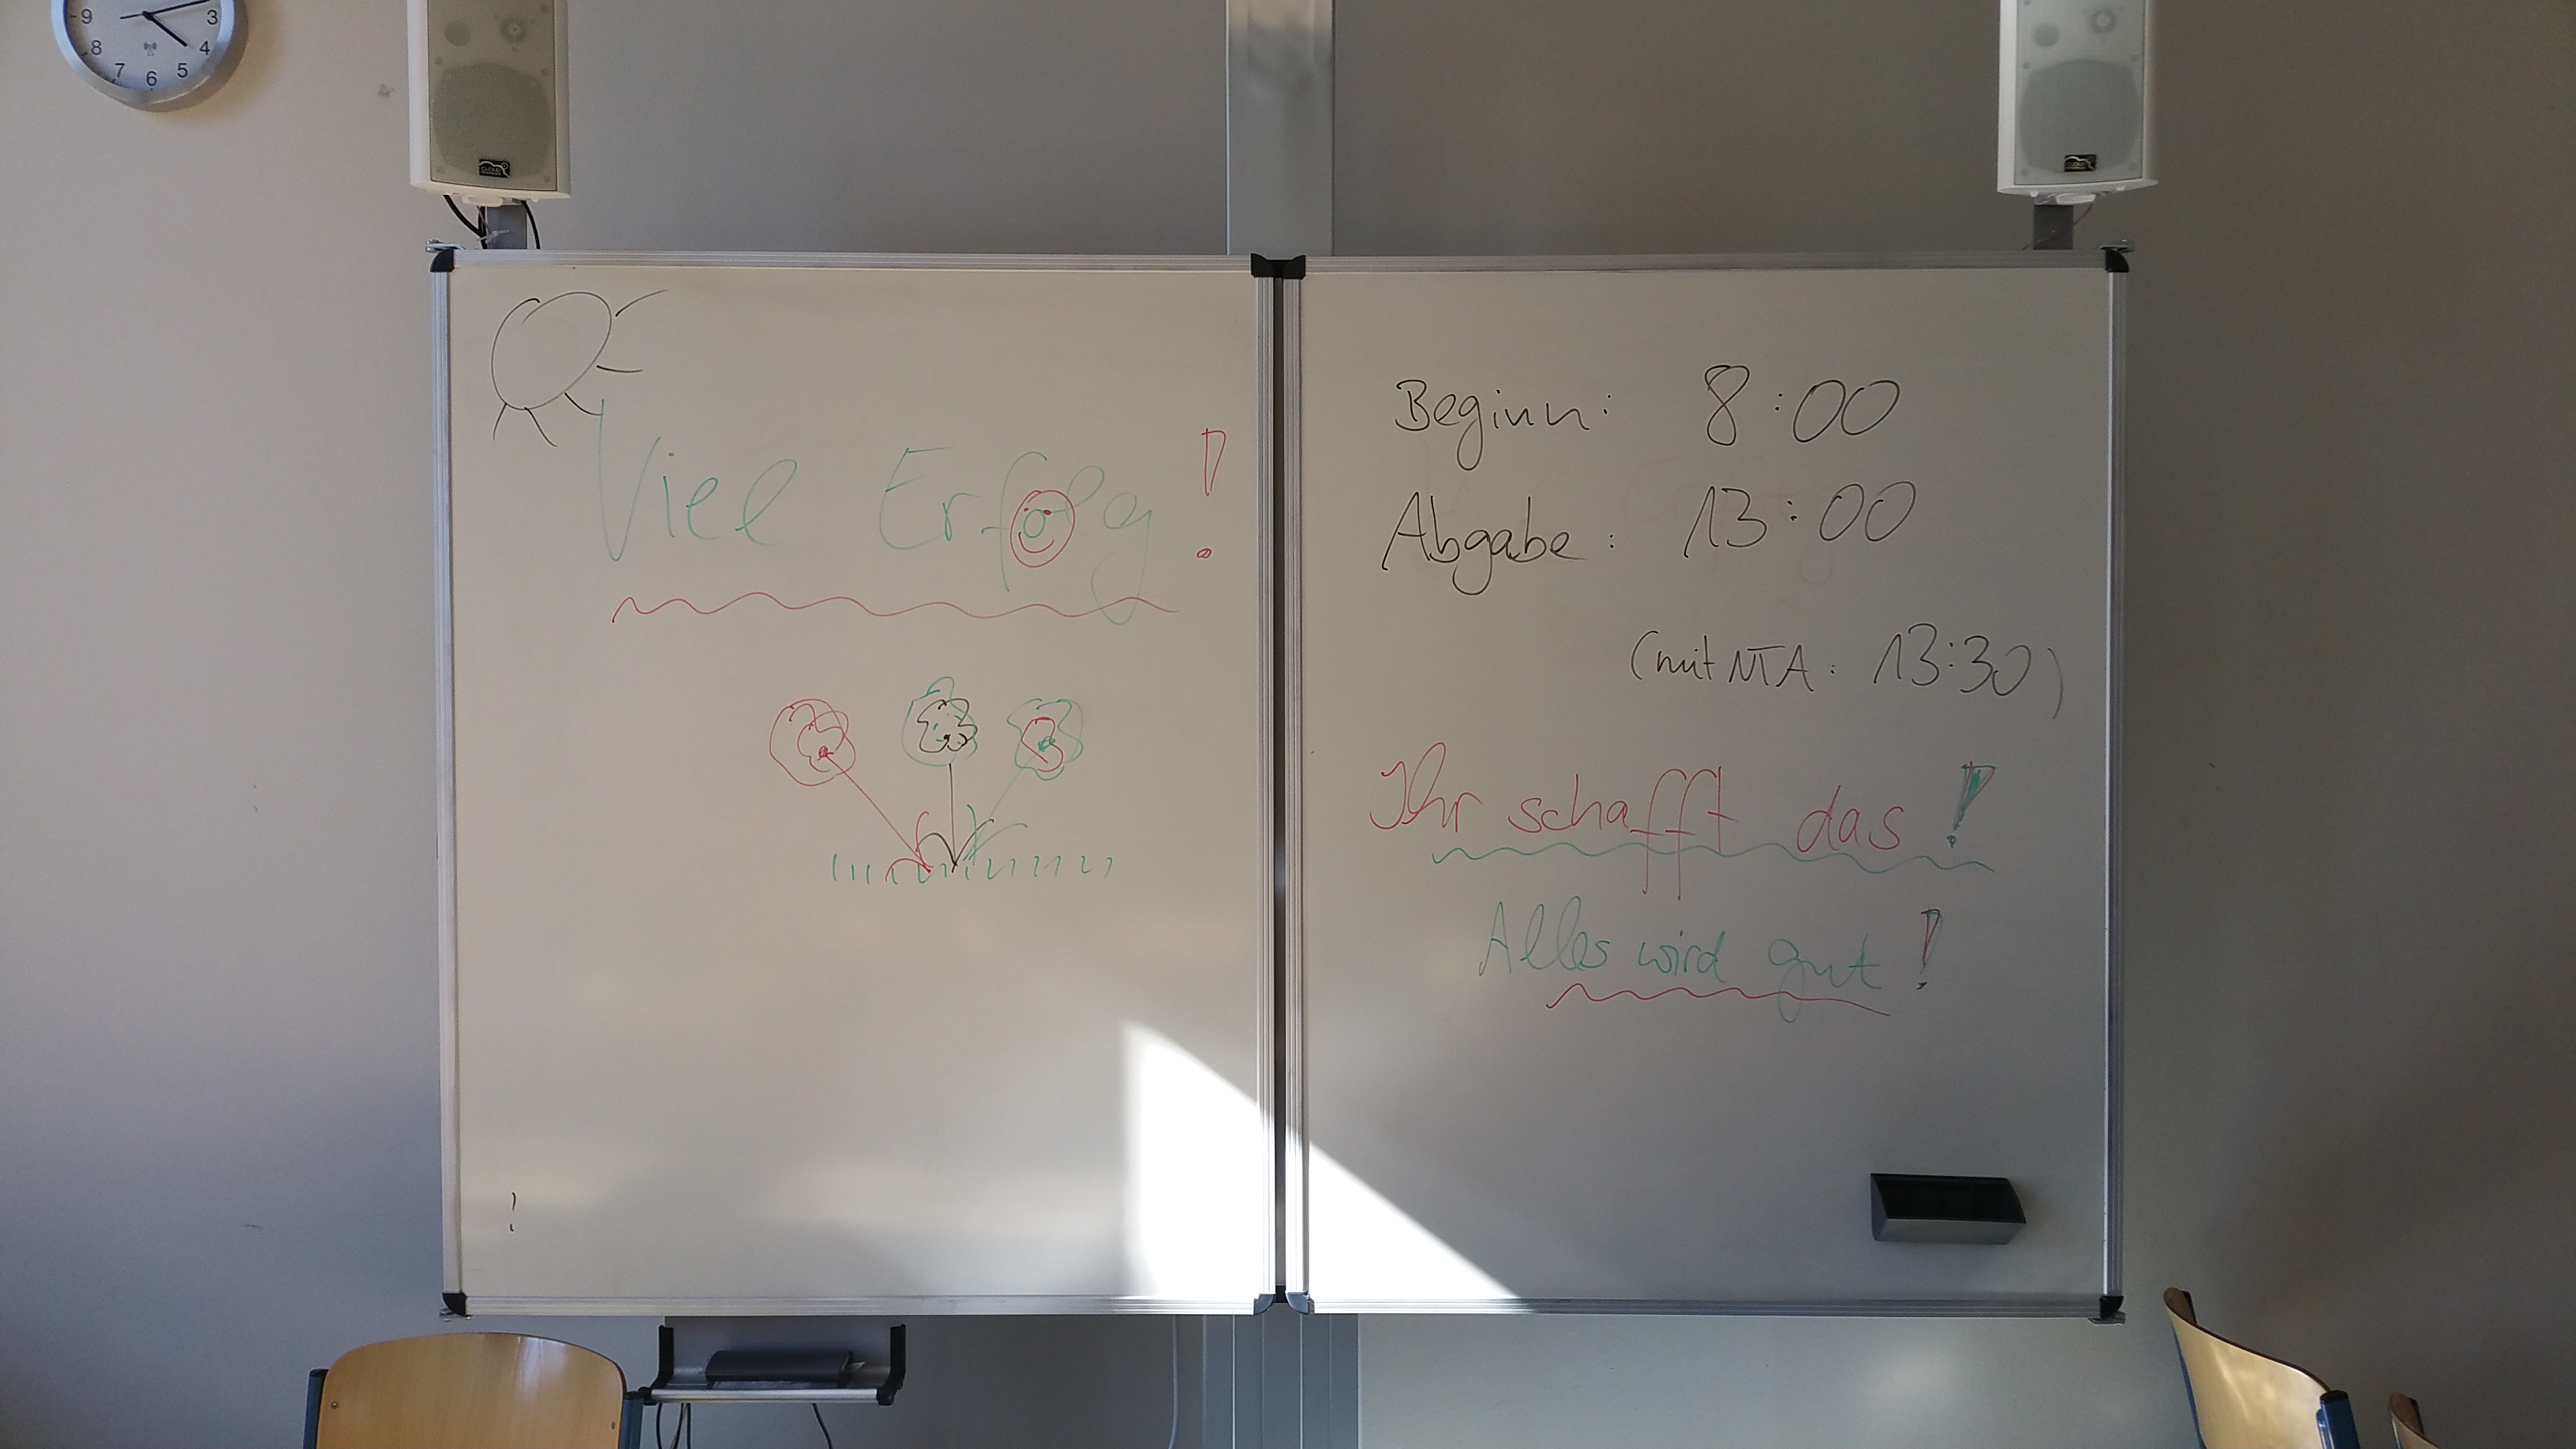 9
3
8
4
7
6
5
Viel Erfolg!
!
Beginn: 8:00
Abgabe: 13:00
(mit NTA: 13:30)
Ihr schafft das!
Alles wird gut!